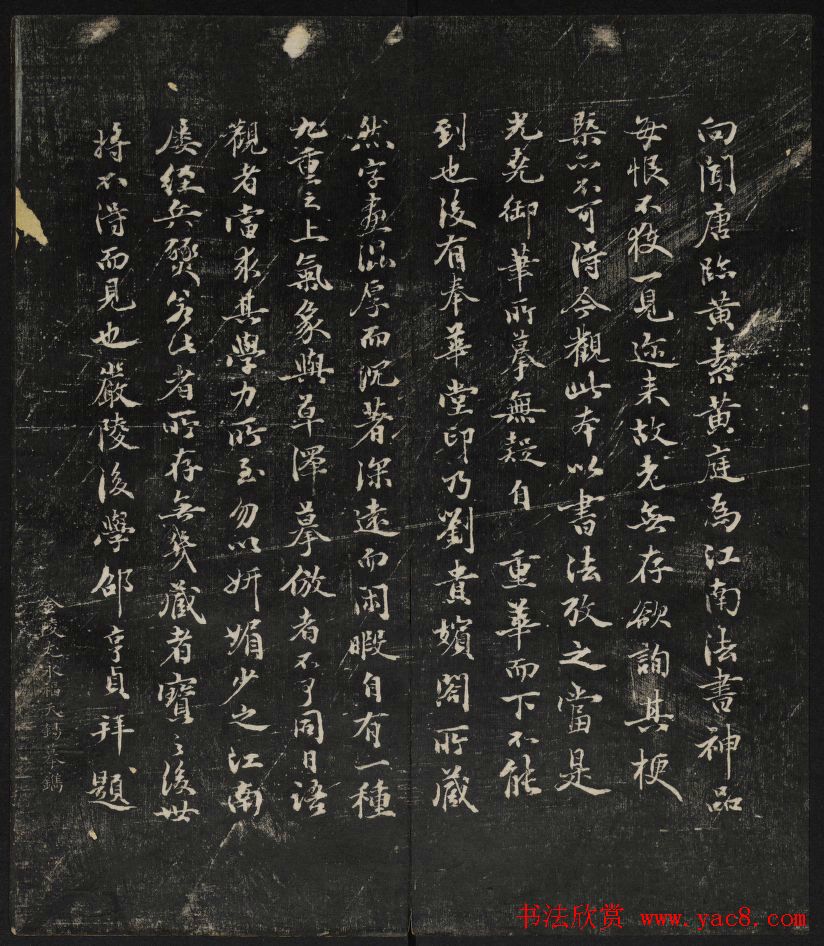 向聞唐臨黃素黃庭為江南法書神品
每恨不獲一見迩来故老無存欲詢其梗
槩亦不可得今觀此本以書法攷之當是
光堯御筆所摹無疑自 重華而下不能
到也後有奉華堂印乃劉貴嬪閣所藏
然字畫混厚而沉著深遠而閑暇自有一種
九重之上氣象與草澤摹倣者不可同日語
觀者當求其學力所至勿以妍媚少之江南
屡經兵燹若此者所存無幾藏者寶之後世
將不得而見也嚴陵後學邵亨貞拜題
書法欣赏 www.yac8.com